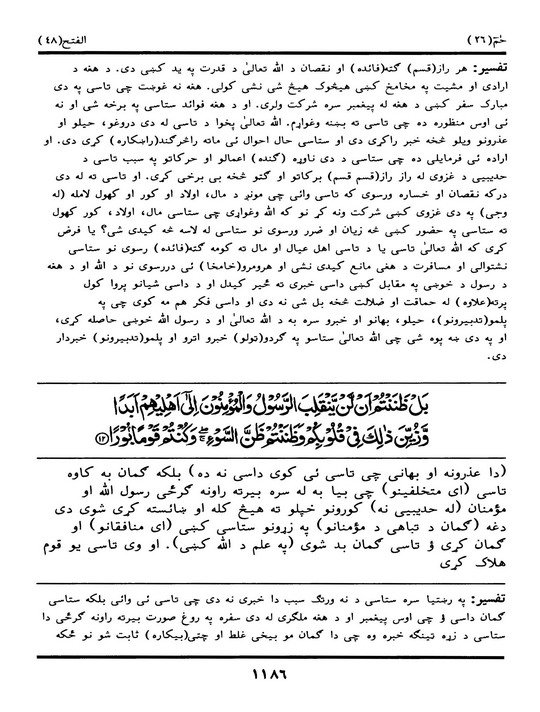 حٰمٓ(۲٦) الفتح(٤٨)
تفسیر: هر راز(قسم) گټه(فائده) او نقصان د الله تعالیٰ د قدرت په ید کښی دی. د هغه د
ارادی او مشیت په مخامخ کښی هیڅوک هیڅ شی نشی کولی. هغه نه غوښت چی تاسی په دی
مبارک سفر کښی د هغه له پیغمبر سره شرکت ولری. او د هغه فوائد ستاسی په برخه شی او نه
ئی اوس منظوره ده چی تاسی ته بښنه وغواړم. الله تعالیٰ پخوا د تاسی له دی دروغو، حیلو او
عذرونو ویلو څخه خبر راکړی دی او ستاسی حال احوال ئی ماته راڅرگند(راښکاره) کړی دی. او
اراده ئی فرمایلی ده چی ستاسی د دی ناوړه (گنده) اعمالو او حرکاتو په سبب تاسی د
حدیبیی د غزوی له راز راز(قسم قسم) برکاتو او گټو څخه بی برخی کړی. او تاسی ته له دی
درکه نقصان او خساره ورسوی که تاسی وائی چی مونږ د مال، اولاد او کور او کهول لامله (له
وجی) په دی غزوی کښی شرکت ونه کړ نو که الله وغواړی چی ستاسی مال، اولاد، کور کهول
ته ستاسی په حضور کښی څه زیان او ضرر ورسوی نو ستاسی له لاسه څه کیدی شی؟ یا فرض
کړی که الله تعالیٰ تاسی یا د تاسی اهل عیال او مال ته کومه گټه(فائده) رسوی نو ستاسی
نشتوالی او مسافرت د هغی مانع کیدی نشی او هرومرو(خامخا) ئی دررسوی نو د الله او د هغه
د رسول د خوښی په مقابل کښی داسی خبری ته ځیر کیدل او د داسی شیانو پروا کول
پرته(علاوه) له حماقت او ضلالت څخه بل شی نه دی او داسی فکر هم مه کوی چی په
پلمو(تدبیرونو)، حیلو، بهانو او خبرو سره به د الله تعالیٰ او د رسول الله خوښی حاصله کړی،
او په دی ښه پوه شی چی الله تعالیٰ ستاسو په گردو(ټولو) خبرو اترو او پلمو(تدبیرونو) خبردار
دی.
بَلْ ظَنَنْتُمْ اَنْ لَّنْ يَّنْقَلِبَ الرَّسُوْلُ وَالْمُؤْمِنُوْنَ اِلٰٓى اَهْلِيْهِمْ اَبَدًا
وَّزُيِّنَ ذٰلِكَ فِيْ قُلُوْبِكُمْ وَظَنَنْتُمْ ظَنَّ السَّوْءِ ۚ وَكُنْتُمْ قَوْمًا بُوْرًا ﴿۱۲﴾
(دا عذرونه او بهانی چی تاسی ئی کوی داسی نه ده) بلکه گمان به کاوه
تاسی (ای متخلفینو) چی بیا به له سره بیرته راونه گرځی رسول الله او
مؤمنان (له حدیبیی نه) کورونو خپلو ته هیڅ کله او ښائسته کړی شوی دی
دغه (گمان د تباهی د مؤمنانو) په زړونو ستاسی کښی (ای منافقانو) او
گمان کړی ؤ تاسی گمان بد شوی (په علم د الله کښی). او وی تاسی یو قوم
هلاک کړی
تفسیر: په رښتیا سره ستاسی د نه ورتگ سبب دا خبری نه دی چی تاسی ئی وائی بلکه ستاسی
گمان داسی ؤ چی اوس پیغمبر او د هغه ملگری له دی سفره په روغ صورت بیرته راونه گرځی دا
ستاسی د زړه تینگه خبره وه چی دا گمان مو بیخی غلط او چتی(بیکاره) ثابت شو نو ځکه
۱۱۸٦